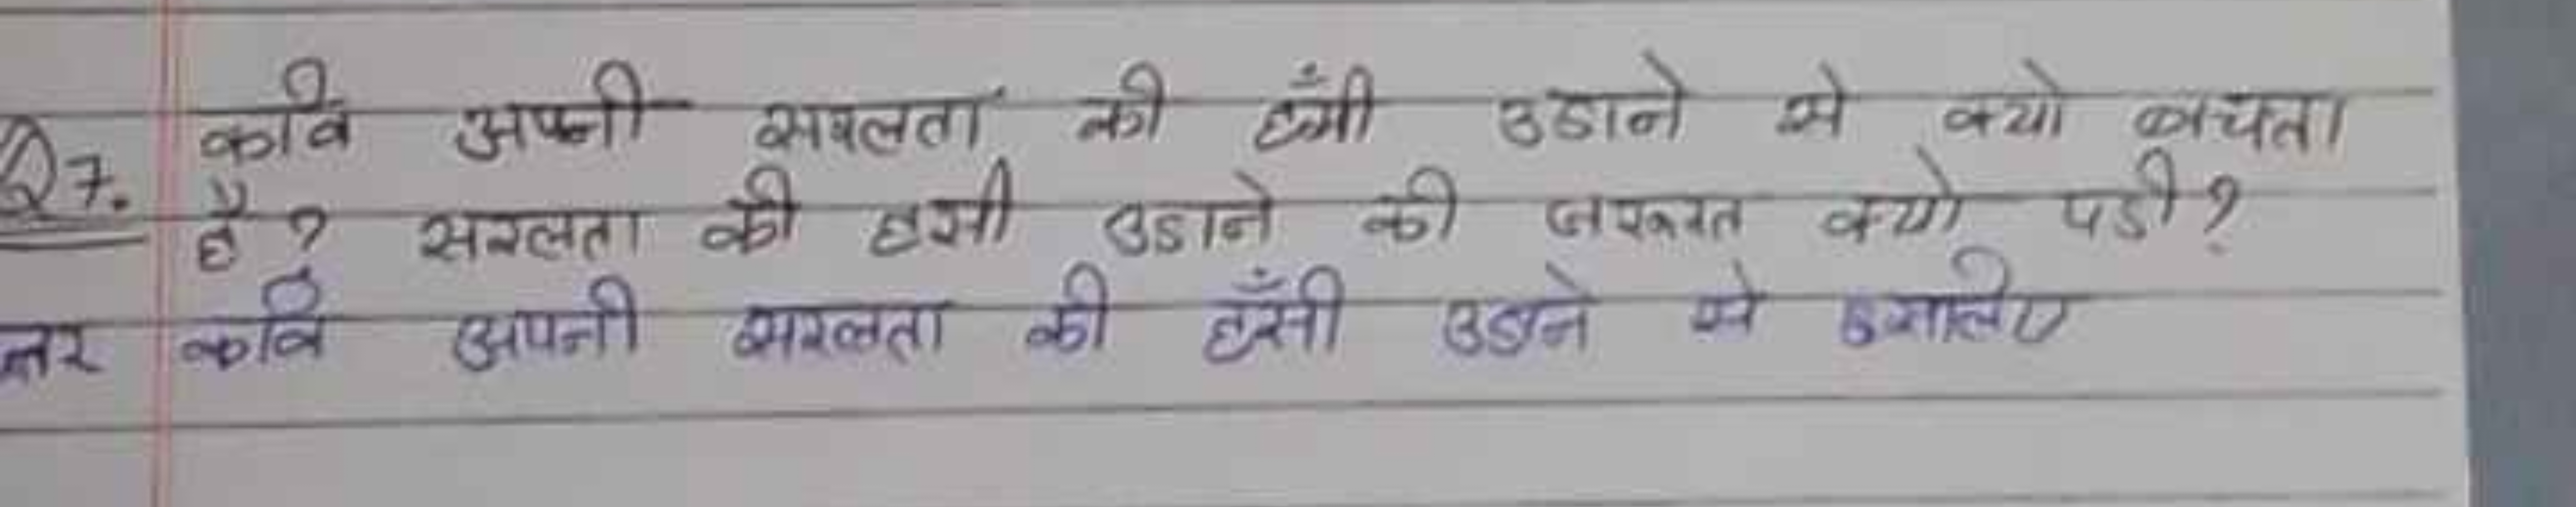 Q7. कवि अपनी सरलता की हँसी उडाने से क्यो बचता
है? सरलता की हसी उडाने की जरूरत क्यो पडी?
त्तर कवि अपनी सरलता की हँसी उडाने से इसलिए